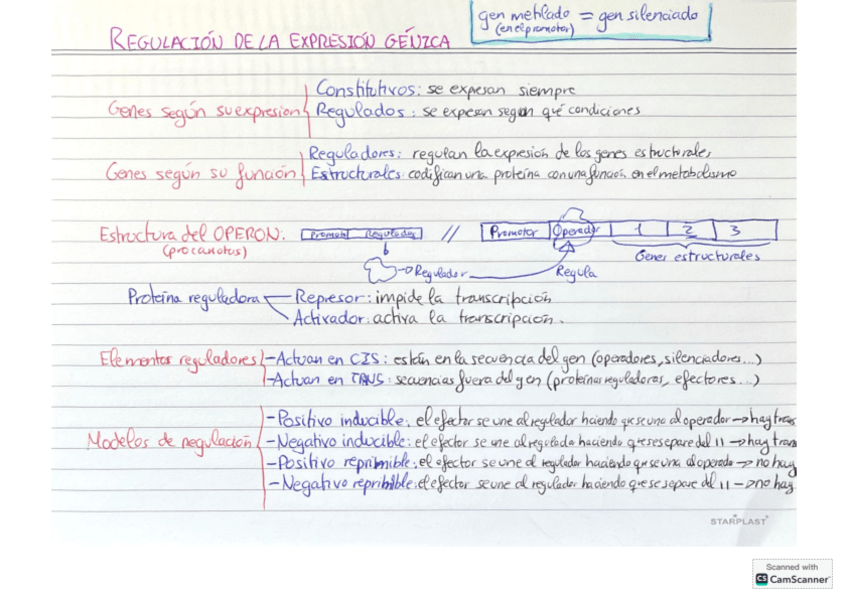 gen metilado = gen silenciado
(en el promotor)
REGULACIÓN DE LA EXPRESIÓN GÉNICA
Genes según su expresión
Constitutivos: se expesan siempre
Regulados: se expesan según qué condiciones
Genes según su función
Reguladores: regulan la expresión de los genes estructurales,
Estructurales: codifican una proteína con una función en el metabolismo
Estructura del OPERON:
(procariotas)
Promotor Regulador // Promotor Operador 1 2 3
Genes estructurales
Regulador
Regula
Proteína reguladora
Represor: impide la transcripción
Activador: activa la transcripción.
Elementos reguladores
-Actuan en CIS: están en la secuencia del gen (operadores, silenciadores...)
-Actuan en TRANS: secuencias fuera del gen (proteínas reguladoras, efectores...)
Modelos de regulación
-Positivo inducible: el efector se une al regulador haciendo que se una al operador → hay trans
-Negativo inducible: el efector se une al regulado haciendo que se separe del 11 → hay tran
-Positivo reprimible: el efector se une al regulador haciendo que se una al operado → no hay
-Negativo repribible: el efector se une al regulador haciendo que se separe del 11 → no hay
STARPLAST
Scanned with
CS CamScanner